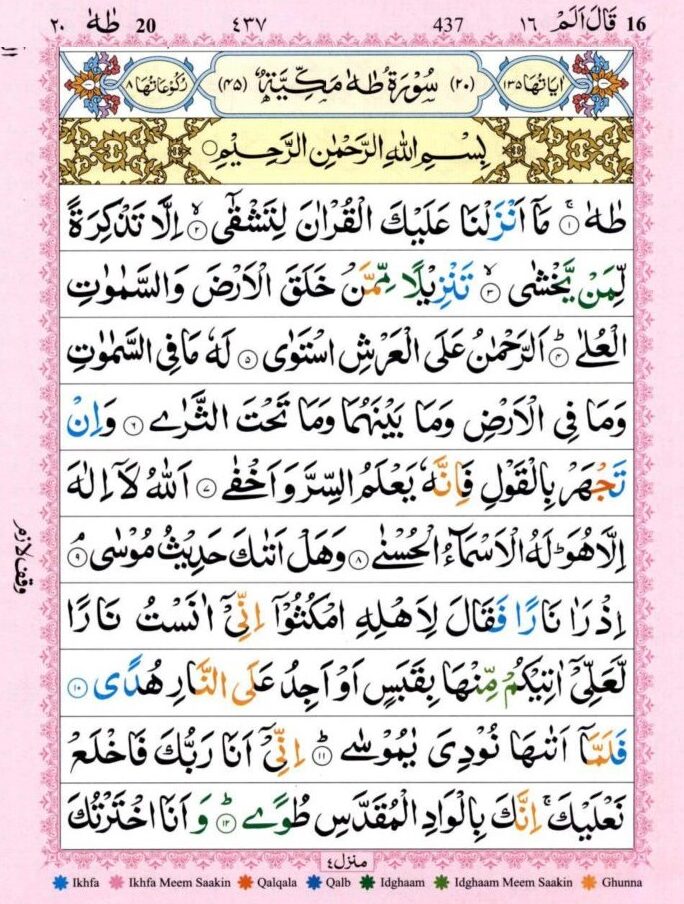 ٢٠ طٰهٰ 20 ٤٣٧ 437 ١٦ قَالَ اَلَمْ 16
اٰيَاتُهَا ١٣٥ (٢٠) سُوْرَةُ طٰهٰ مَكِّيَّةٌ (٤٥) رُكُوْعَاتُهَا ٨
بِسْمِ اللّٰهِ الرَّحْمٰنِ الرَّحِيْمِ ○
طٰهٰ ۚ‏﴿۱﴾ مَاۤ اَنْزَلْنَا عَلَيْكَ الْقُرْاٰنَ لِتَشْقٰٓى ۙ‏﴿۲﴾ اِلَّا تَذْكِرَةً
لِّمَنْ يَّخْشٰى ۙ‏﴿۳﴾ تَنْزِيْلًا مِّمَّنْ خَلَقَ الْاَرْضَ وَالسَّمٰوٰتِ
الْعُلٰى ؕ‏﴿۴﴾ اَلرَّحْمٰنُ عَلَى الْعَرْشِ اسْتَوٰى ﴿۵﴾ لَهٗ مَا فِى السَّمٰوٰتِ
وَمَا فِى الْاَرْضِ وَمَا بَيْنَهُمَا وَمَا تَحْتَ الثَّرٰى ﴿۶﴾ وَاِنْ
تَجْهَرْ بِالْقَوْلِ فَاِنَّهٗ يَعْلَمُ السِّرَّ وَاَخْفٰى ﴿۷﴾ اَللّٰهُ لَاۤ اِلٰهَ
اِلَّا هُوَ ؕ لَهُ الْاَسْمَآءُ الْحُسْنٰى ﴿۸﴾ وَهَلْ اَتٰٮكَ حَدِيْثُ مُوْسٰى ۘ‏﴿۹﴾
اِذْ رَاٰ نَارًا فَقَالَ لِاَهْلِهِ امْكُثُوْۤا اِنِّىْۤ اٰنَسْتُ نَارًا
لَّعَلِّىْۤ اٰتِيْكُمْ مِّنْهَا بِقَبَسٍ اَوْ اَجِدُ عَلَى النَّارِ هُدًى ﴿۱۰﴾
فَلَمَّاۤ اَتٰٮهَا نُوْدِىَ يٰمُوْسٰى ؕ‏﴿۱۱﴾ اِنِّىْۤ اَنَا رَبُّكَ فَاخْلَعْ
نَعْلَيْكَ ۚ اِنَّكَ بِالْوَادِ الْمُقَدَّسِ طُوًى ؕ‏﴿۱۲﴾ وَاَنَا اخْتَرْتُكَ
وقف لازم
منزل ٤
Ikhfa Ikhfa Meem Saakin Qalqala Qalb Idghaam Idghaam Meem Saakin Ghunna